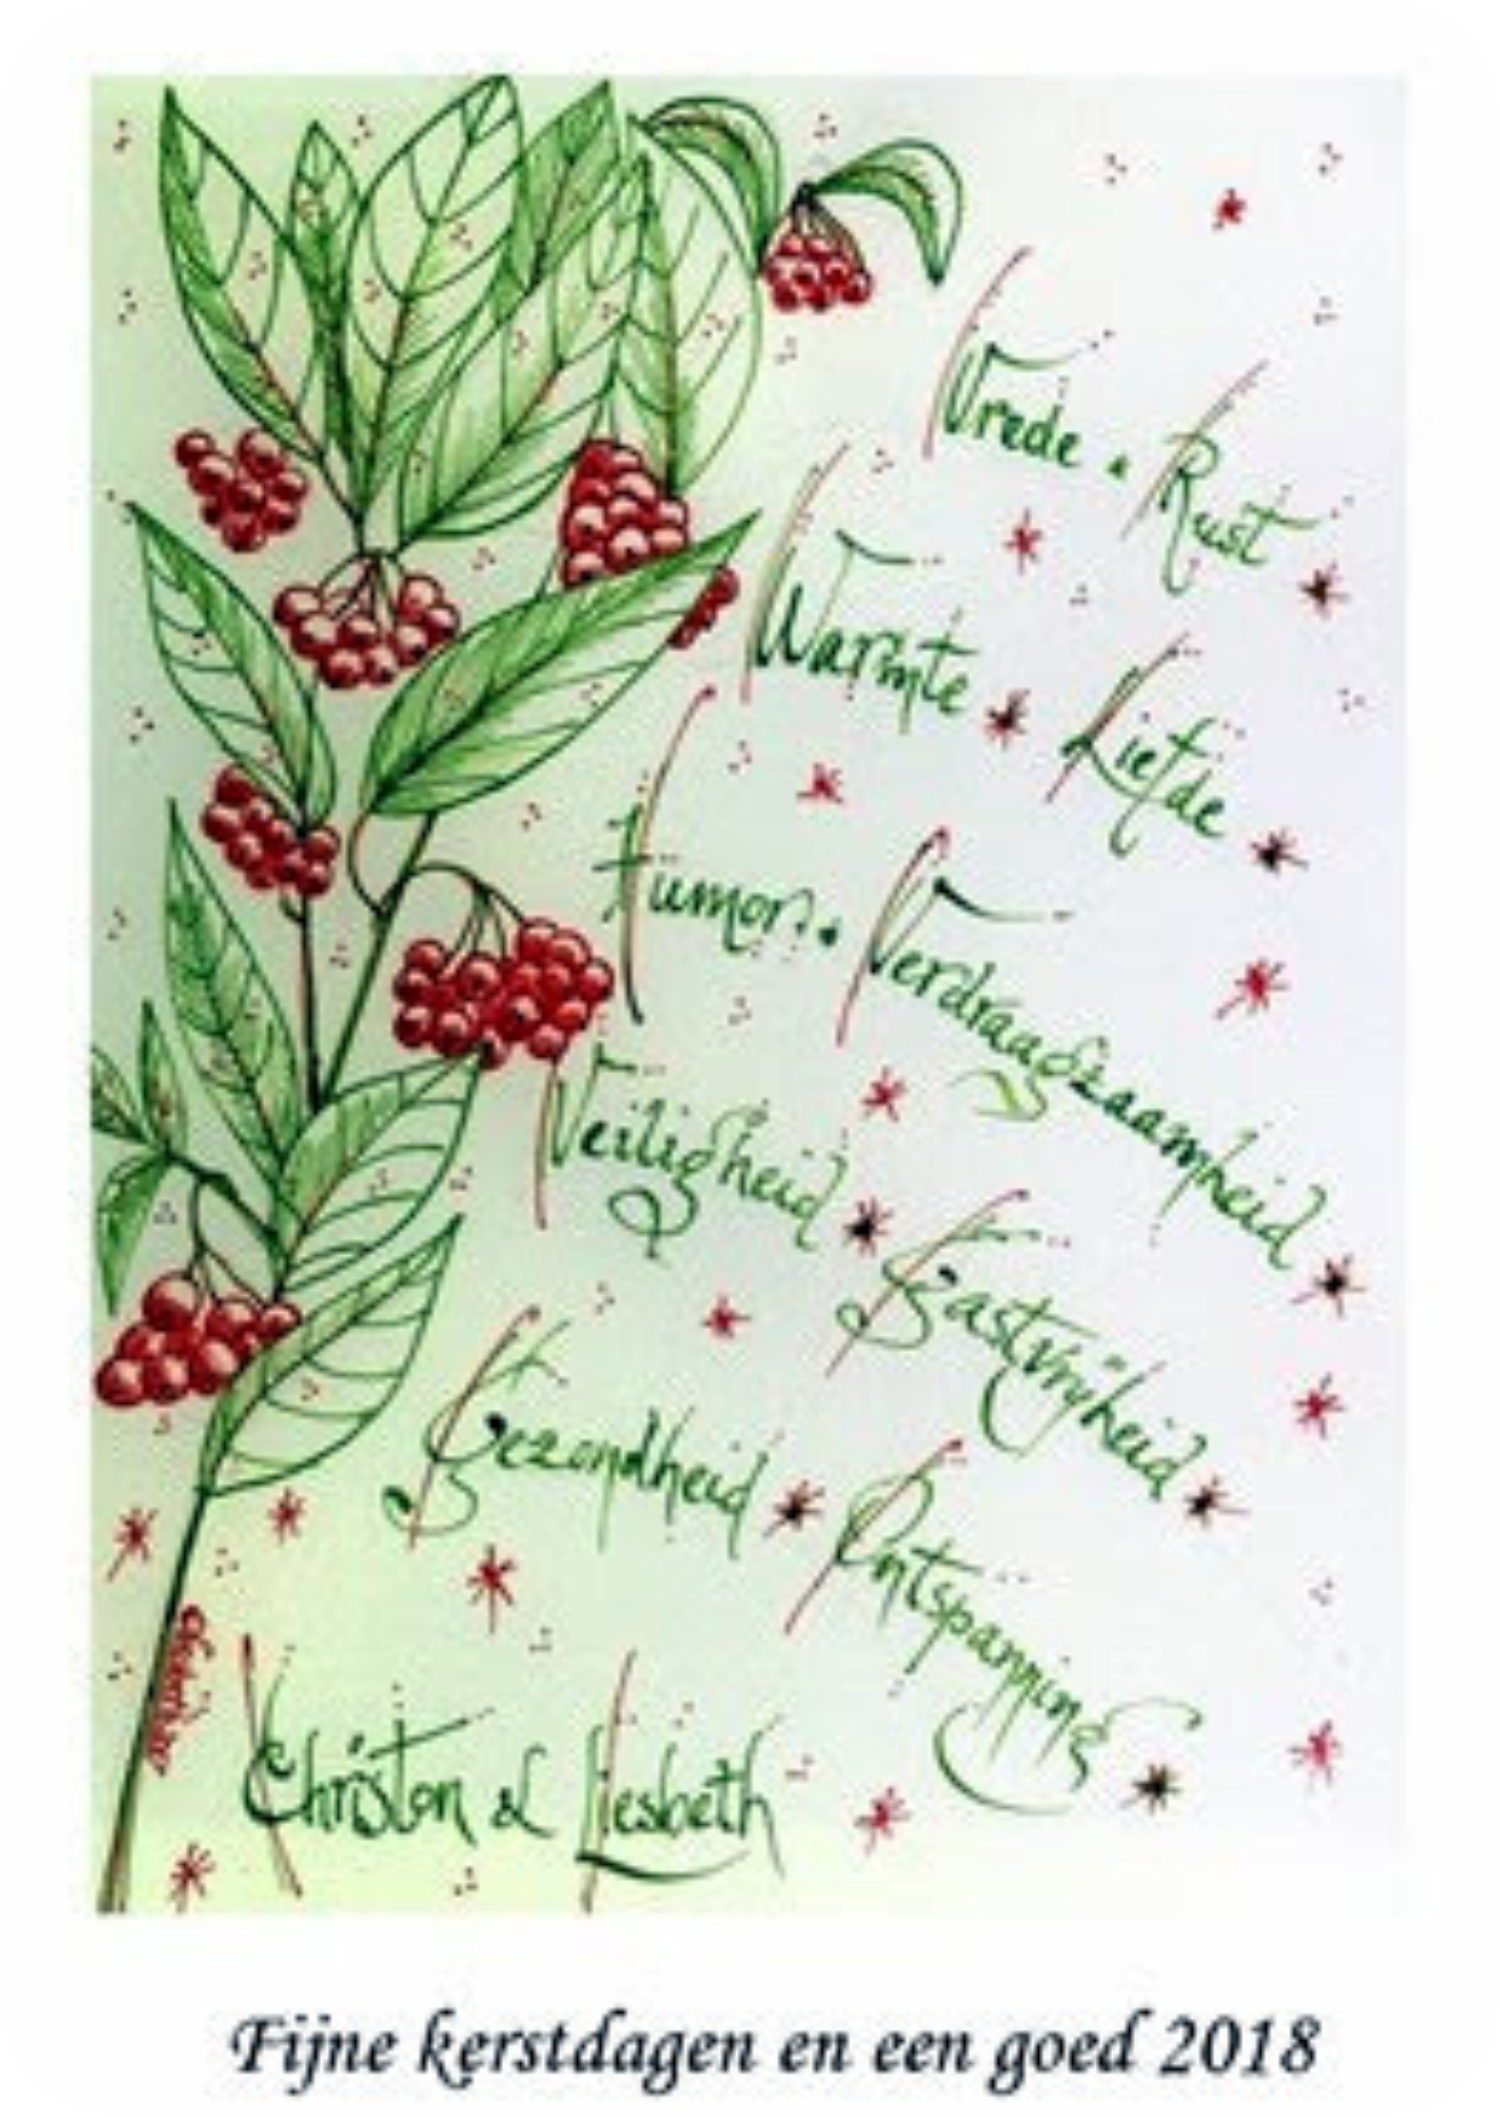 Vrede • Rust
Warmte Liefde
Humor • Verdraagzaamheid
Veiligheid Gastvrijheid
Gezondheid Ontspanning
Christon & Liesbeth
Fijne kerstdagen en een goed 2018